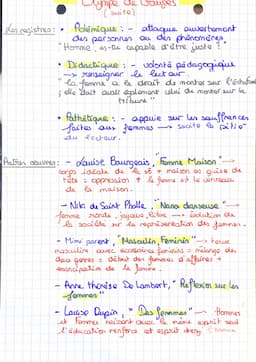 Olympe de Gouges
(suite)
Les registres : • Polémique : - attaque ouvertement
des personnes ou des phénomènes
"Homme, es-tu capable d'être juste ?"
• Didactique : - volonté pédagogique
→ renseigner le lecteur.
"la femme a le droit de monter sur l'échafaud
; elle doit avoir également celui de monter sur la
tribune"
• Pathétique : - appuie sur les souffrances
faites aux femmes → suscite la pitié
du lecteur.
Autres oeuvres : - Louise Bourgeois, "Femme Maison" →
corps idéale de la + maison en guise de
tête : oppression + la femme et le
de la maison.
- Niki de Saint Phalle, "Nana danseuse" →
femme ronde, joyeuse, libre → évolution de
la société sur la représentation des femmes.
- Mimi parent, "Masculin Féminin" →
masculine avec féminins = mélange des
deux genres = début des femmes d'affaires =
émancipation de la femme.
- Anne Thérèse De Lambert, "Réflexion sur les
femmes"
- Louise Dupin, "Des femmes" → Hommes
et femmes naissent avec le même esprit seul
l'éducation renforce et esprit chez